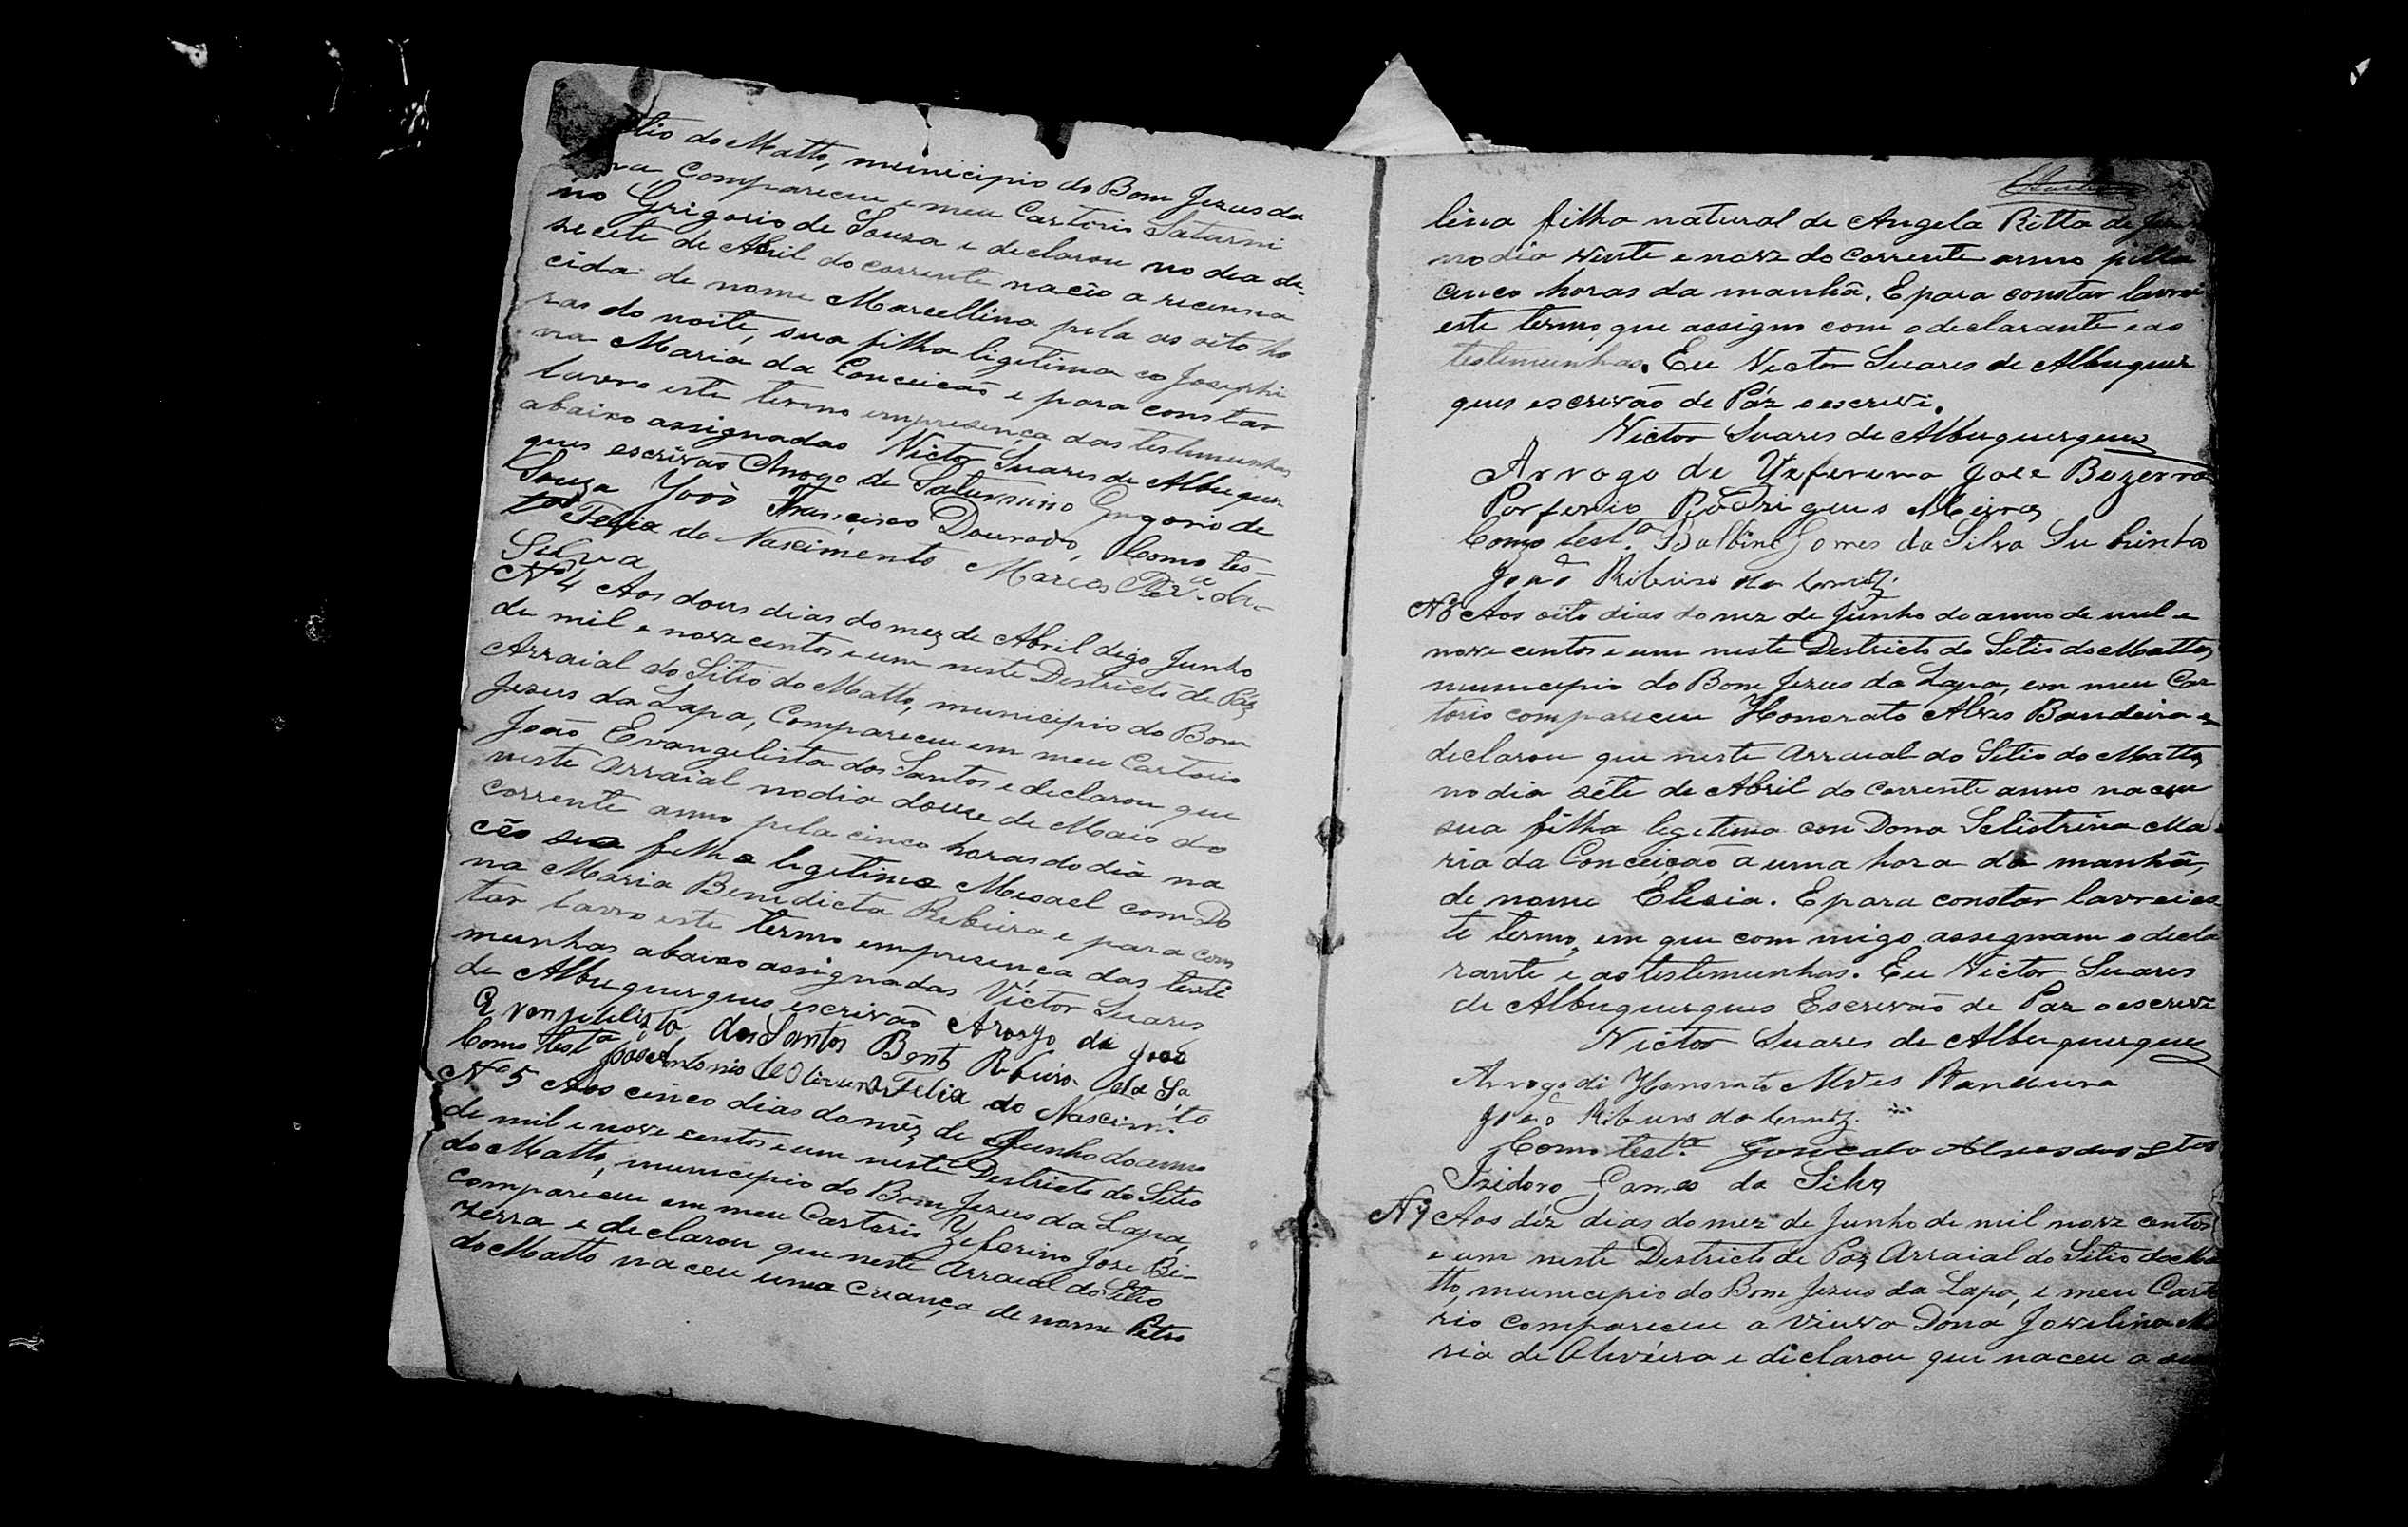 tio do Matto, municipio do Bom Jezus da
na compareceu e meu Cartorio Saturni
no Grigorio de Souza e declarou no dia de-
zecete de Abril do corrente naceo a recenna
cida de nome Marcellina pela as oito ho
ras do noite, sua filha ligitima co Josephi
na Maria da Conceicão e para constar
lavro este termo empresença das testemunhas
abaixo assignadas Victor Suares de Albuquer
ques escrivão Arrogo de Saturnino Grigorio de
Souza João Francisco Dourado, Como tes-
tas Felix do Nascimento Marcos Per.a da
Silva
Nº 4 Aos dous dias do mez de Abril digo Junho
de mil e nove centos e um neste Destricto de Páz
Arraial do Sitio do Matto, municipio do Bom
Jezus da Lapa, Compareceu em meu Cartorio
João Evangelista dos Santos e declarou que
neste arraial no dia douze de Maio do
corrente anno pela cinco horas do dia na
cêo sua filha legitima Misael com Do
na Maria Benidicta Ribeira e para cons
tar lavro este termo empresença das teste
munhas abaixo assignadas Victor Suares
de Albuquerques escrivão Arogo de João
Evangelista dos Santos Bent Ribeiro da Sa
Como testa José Antonio de Olivera Felix do Nascim.to
Nº 5 Aos cinco dias do mêz de Junho do anno
de mil e nove centos e um neste Destricto do Sitio
do Matto, municipio do Bom Jezus da Lapa,
compareceu em meu Cartorio Zeferino Jose Bi-
zerra e declarou que neste Arraial do Sitio
do Matto naceu uma criança de nome Petro
lina filha natural de Angela Ritta de
no dia vinte e nove do corrente anno pella
cinco horas da manhã. E para constar lavrei
este termo que assigno com o declarante e as
testemunhas. Eu Victor Suares de Albuquer
ques escrivão de Páz o escrevi.
Victor Suares de Albuquerques
Arrogo de Zeferino Jose Bezerra
Porferio Rodrigues Meira
Como test.a Balbino Gomes da Silva
João Ribeiro da
Nº 6 Aos oito dias do mez de Junho do anno de mil e
nove centos e um neste Destricto do Sitio do Matto,
municipio do Bom Jezus da Lapa, em meu Car
torio compareceu Honorato Alves Bandeira e
declarou que neste Arraial do Sitio do Matto,
no dia séte de Abril do corrente anno naceu
sua filha legitima con Dona Selistrina Ma
ria da Conceição á uma hora da manhã,
de nome Elisia. E para constar lavrei es
te termo, em que com migo assignam o decla
rante e as testemunhas. Eu Victor Suares
de Albuquerques Escrivão de Paz o escrevi
Victor Suares de Albuquerques
Arrogo di Honorato Alves Bandeira
João Ribeiro da
Como test.a Goncalo Alves dos Stos
Izidoro Gomes da Silva
Nº 7 Aos déz dias do mez de Junho de mil nove centos
e um neste Destricto de Paz, Arraial do Sitio do Ma
tto, municipio do Bom Jezus da Lapa, e meu Carto
rio compareceu a viuva Dona Jovelina Ma
ria de Olivéira e declarou que naceu a sua